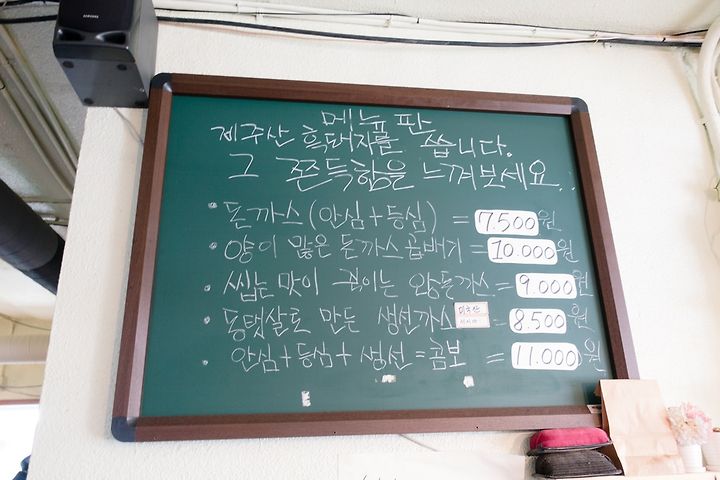 SAMSUNG
메뉴판
제주산 흑돼지를 씁니다.
그 쫀득함을 느껴보세요..
• 돈까스 (안심+등심) = 7.500원
• 양이 많은 돈까스곱배기 = 10.000원
• 씹는 맛이 죽이는 왕돈까스 = 9.000원
• 동탯살로 만든 생선까스 = 8.500원
• 안심+등심+생선=콤보 = 11.000원